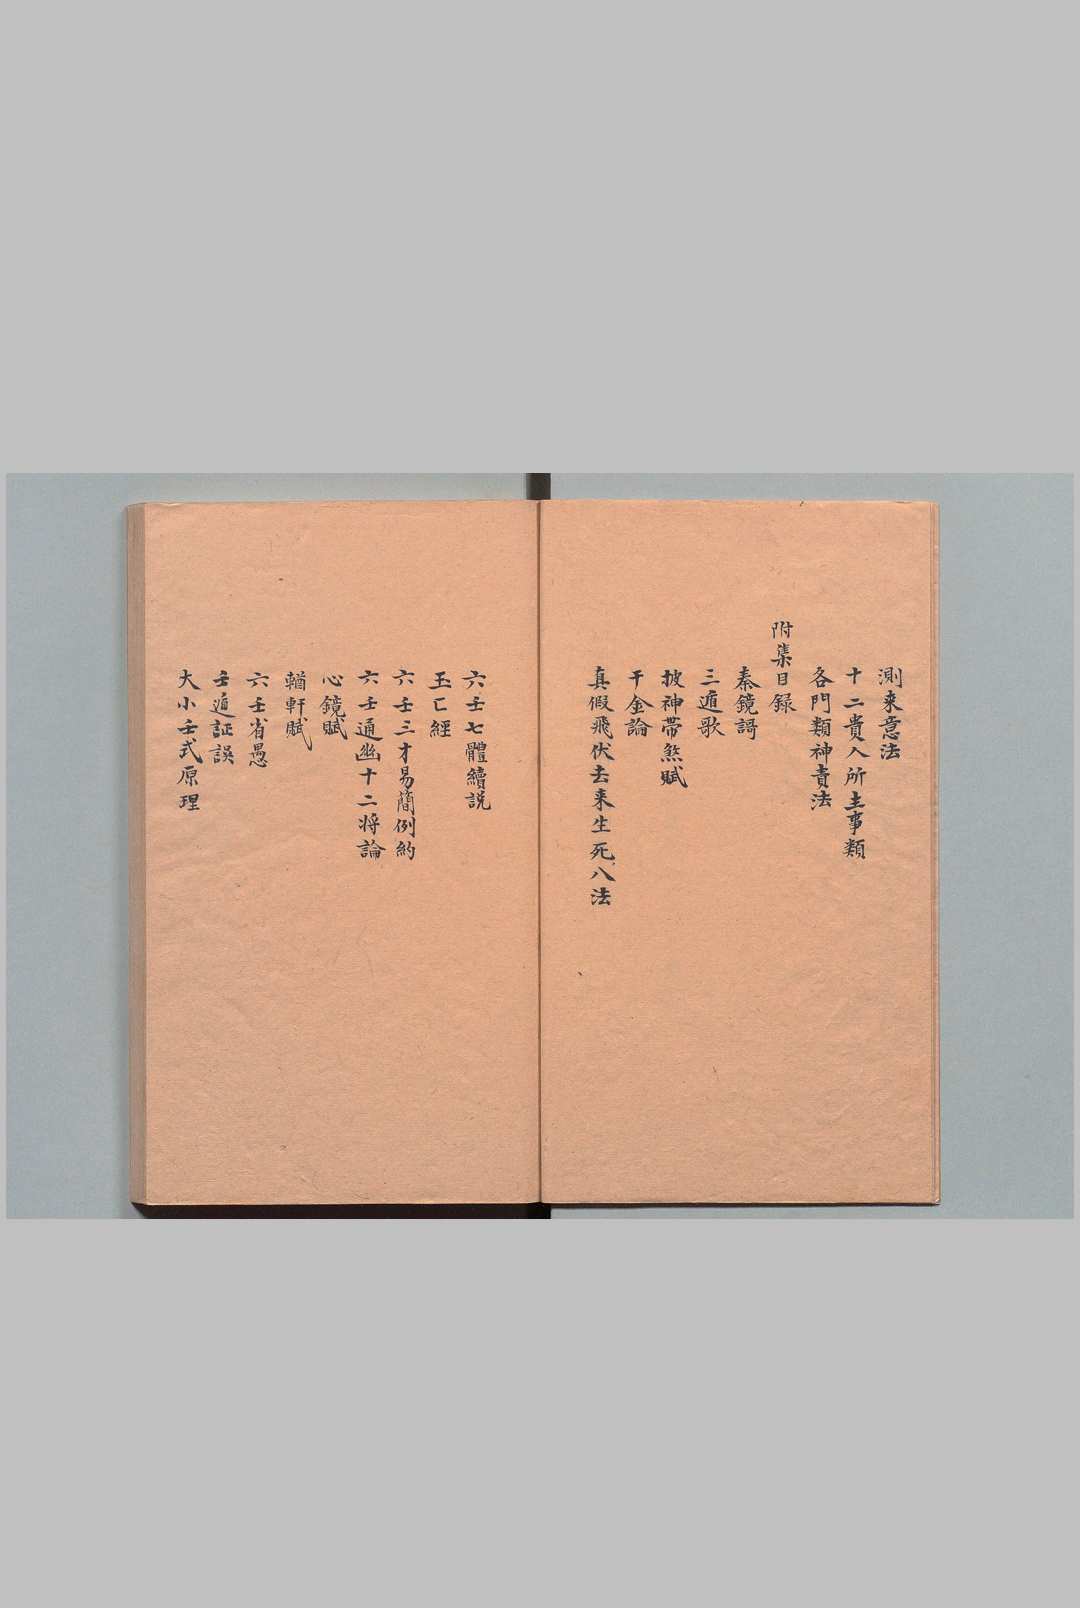 測来意法
十二貴人所主事類
各門類神責法
附集目録
秦鏡謌
三遁歌
披神帯煞賦
干金論
真假飛伏去来生死八法
六壬七體續説
玉匚經
六壬三才易簡例約
六壬通幽十二将論
心鏡賦
輶軒賦
六壬省愚
壬遁証誤
大小壬式原理